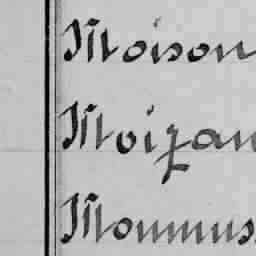 Moison
Moizan
Mommus